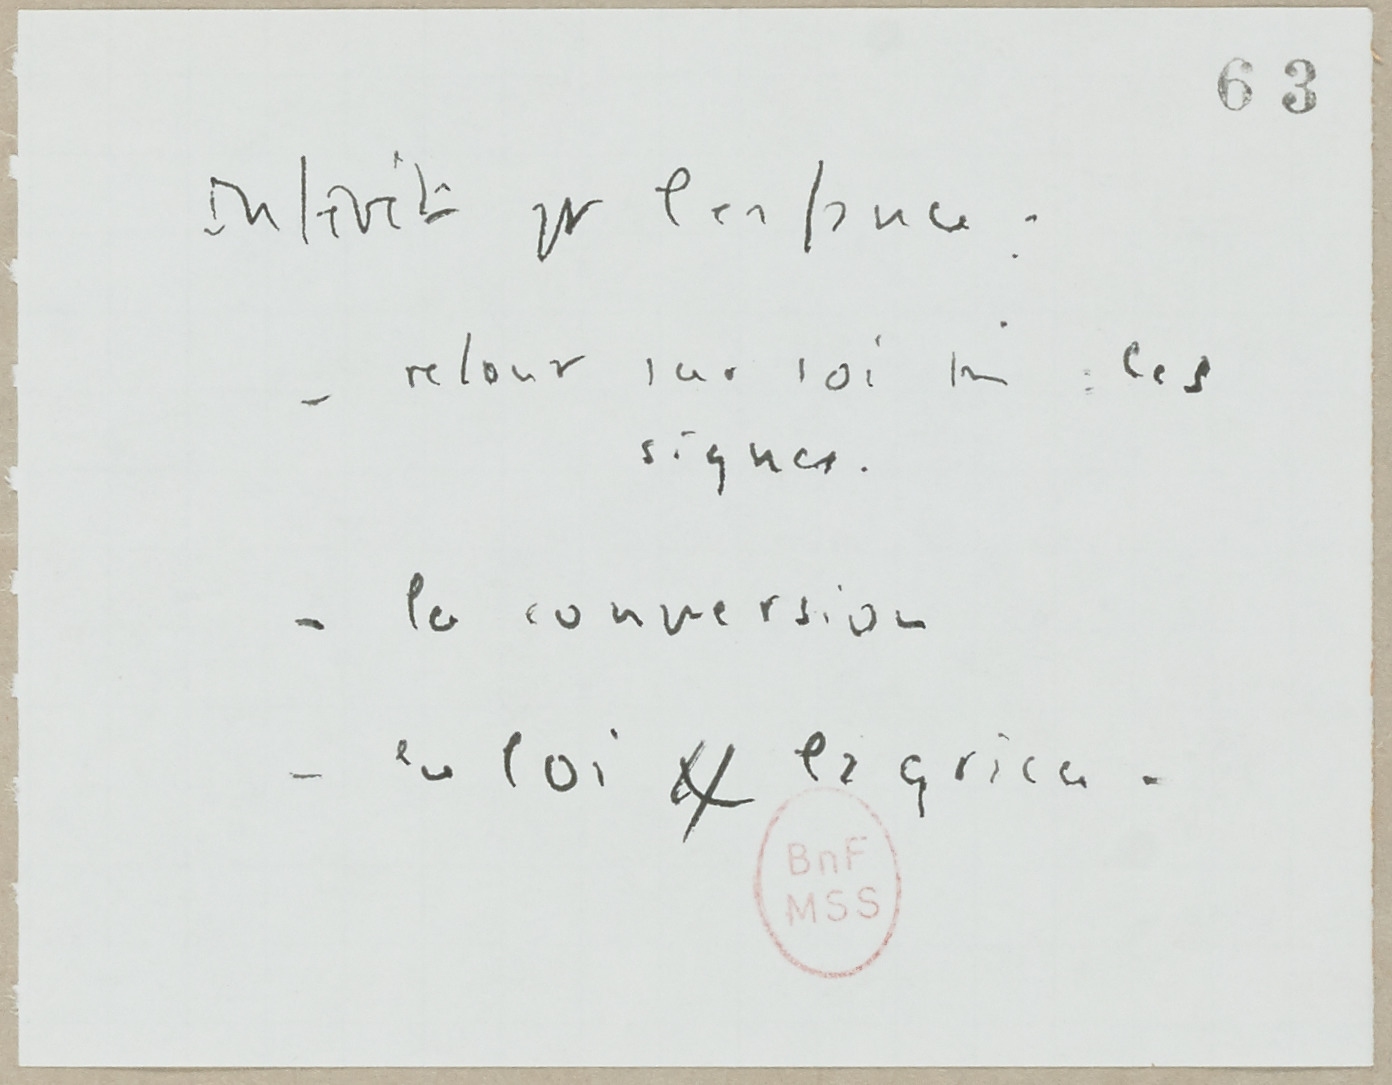 63
Intérêt pr l'enfance :
- retour sur soi : les
signes.
- la conversion
- la loi & la grâce.
BnF
MSS